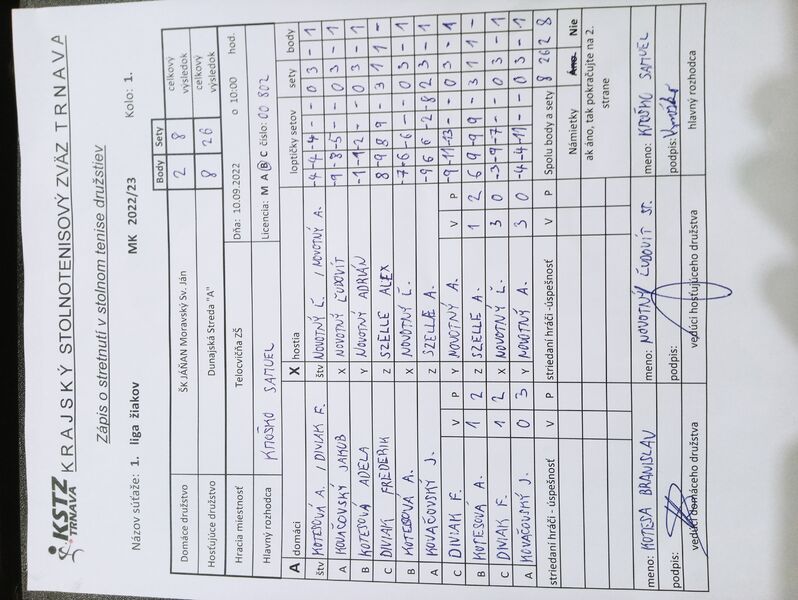 KSTZ TRNAVA
KRAJSKÝ STOLNOTENISOVÝ ZVÄZ TRNAVA
Zápis o stretnutí v stolnom tenise družstiev
Názov súťaže: 1. liga žiakov MK 2022/23 Kolo: 1.
Body Sety
Domáce družstvo ŠK JÁŇAN Moravský Sv. Ján 2 8 celkový výsledok
Hosťujúce družstvo Dunajská Streda "A" 8 26 celkový výsledok
Hracia miestnosť Telocvičňa ZŠ Dňa: 10.09.2022 o 10:00 hod.
Hlavný rozhodca KMOŠKO SAMUEL Licencia: M A B C číslo: 00 802
A domáci X hostia loptičky setov sety body
štv KOTESOVÁ A. / DIVIAK F. štv NOVOTNÝ Ľ. / NOVOTNÝ A. -4 -4 -4 - - 0 3 - 1
A KOVAČOVSKÝ JAKUB X NOVOTNÝ ĽUDOVÍT -9 -8 -5 - - 0 3 - 1
B KOTESOVÁ ADELA Y NOVOTNÝ ADRIÁN -1 -1 -2 - - 0 3 - 1
C DIVIAK FREDERIK Z SZELLE ALEX 8 -9 8 9 - 3 1 1 -
B KOTESOVÁ A. X NOVOTNÝ Ľ. -7 -6 -6 - - 0 3 - 1
A KOVAČOVSKÝ J. Z SZELLE A. -9 6 6 -2 -8 2 3 - 1
C DIVIAK F. V P Y NOVOTNÝ A. V P -9 -11 -13 - - 0 3 - 1
B KOTESOVÁ A. 1 2 Z SZELLE A. 1 2 6 9 -9 9 - 3 1 1 -
C DIVIAK F. 1 2 X NOVOTNÝ Ľ. 3 0 -3 -9 -7 - - 0 3 - 1
A KOVAČOVSKÝ J. 0 3 Y NOVOTNÝ A. 3 0 -4 -4 -11 - - 0 3 - 1
striedaní hráči - úspešnosť V P striedaní hráči -úspešnosť V P Spolu body a sety 8 26 2 8
Námietky Áno Nie
ak áno, tak pokračujte na 2. strane
meno: KOTESA BRANISLAV meno: NOVOTNÝ ĽUDOVÍT ST. meno: KMOŠKO SAMUEL
podpis: podpis: podpis: Kmoško
vedúci domáceho družstva vedúci hosťujúceho družstva hlavný rozhodca